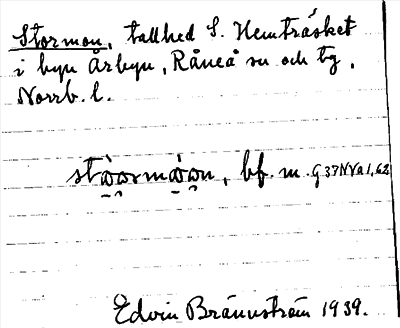 Stormon, tallhed S. Hemträsket
i byn Årbyn, Råneå sn och tg,
Norrb. l.
bf. m. G 37 N Va 1, 62
Edvin Brännström 1939.